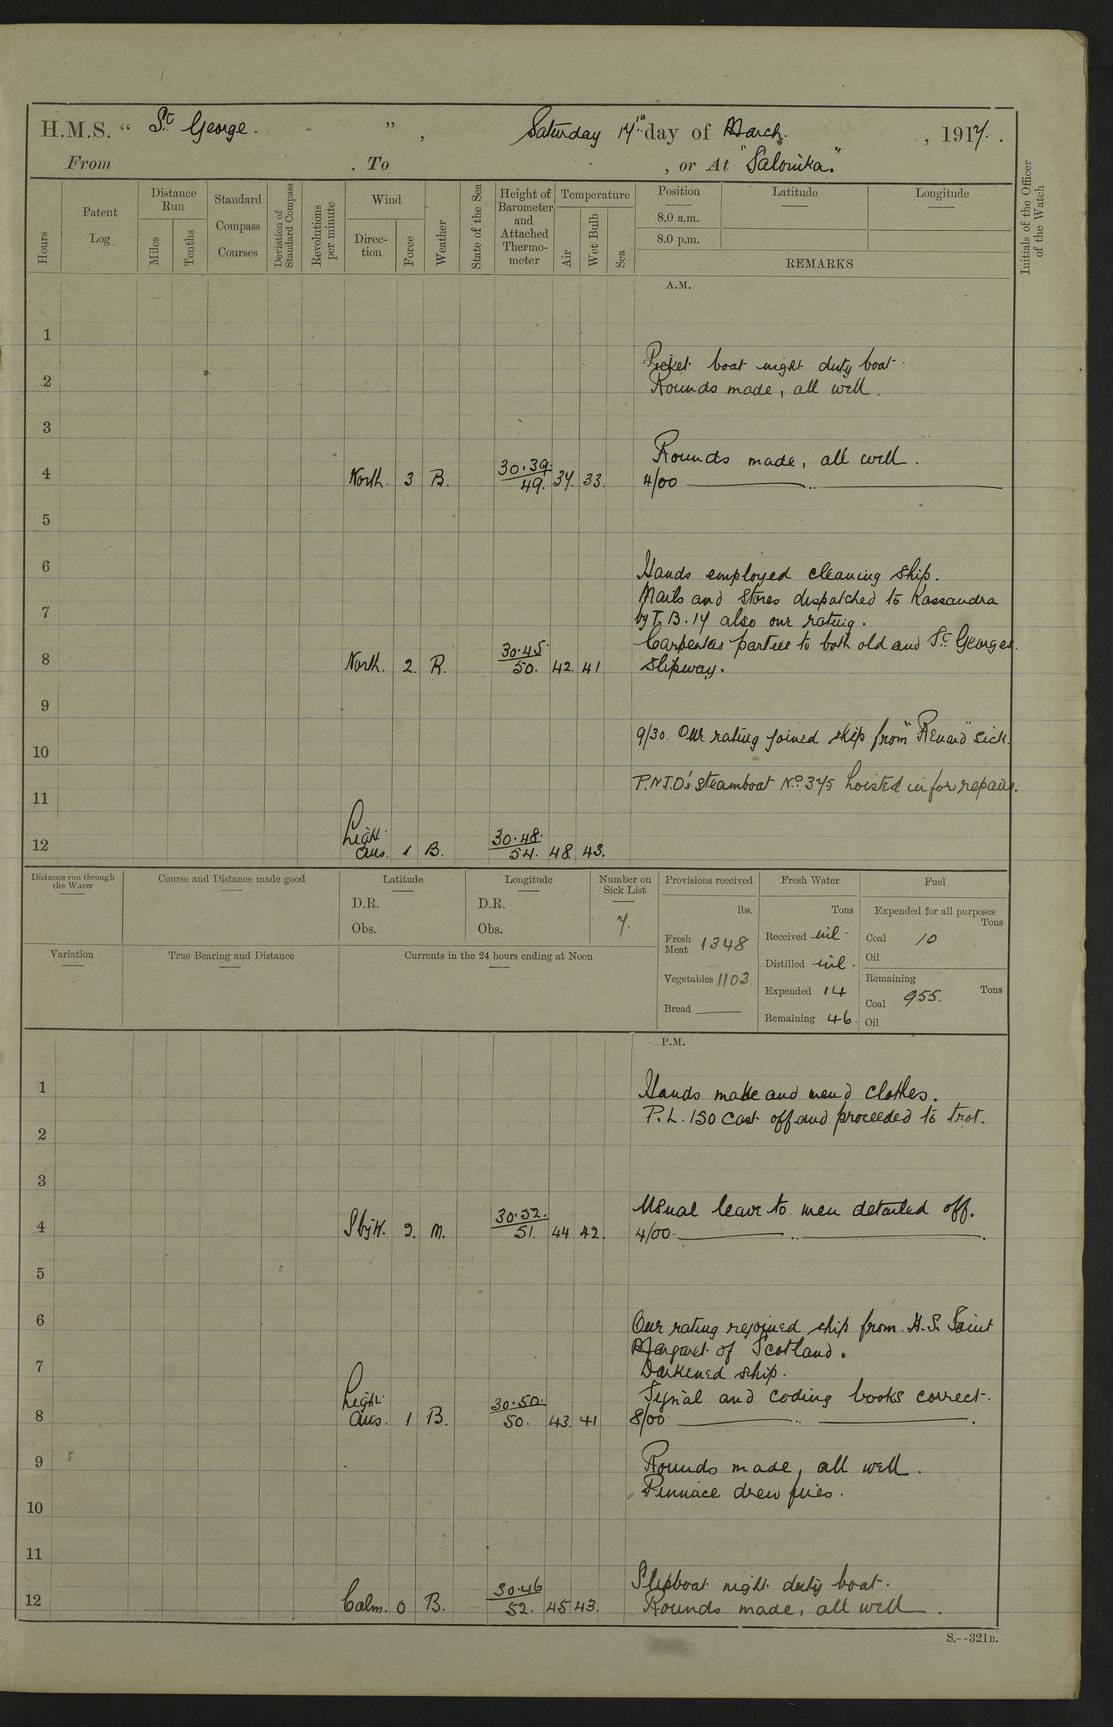 H.M.S. " St George. " , Saturday 17th day of March. , 1917.
From . To , or At "Salonika."
Hours
Patent Log.
Distance Run
Miles
Tenths
Standard Compass Courses
Deviation of Standard Compass
Revolutions per minute
Wind
Direction
Force
Weather
State of the Sea
Height of Barometer and Attached Thermometer
Temperature
Air
Wet Bulb
Sea
Position
8.0 a.m.
8.0 p.m.
Latitude
Longitude
REMARKS
Initials of the Officer of the Watch
A.M.
1
Picket boat night duty boat.
2 Rounds made, all well.
3
Rounds made, all well.
4 North. 3 B. 30.39. 49. 37. 33. 4/00 ——— " ———
5
6 Hands employed cleaning ship.
Mails and Stores dispatched to Kassandra
7 by T.B. 17 also one rating.
Carpenters parties to both old and St Georges
8 North. 2. R. 30.45. 50. 42. 41 Slipway.
9
9/30. One rating joined ship from "Renard" sick.
10
P.N.T.O's Steamboat No 375 hoisted in for repairs.
11
12 Light airs. 1 B. 30.48. 54. 48. 43.
Distance run through the Water
Course and Distance made good
Latitude
D.R.
Obs.
Longitude
D.R.
Obs.
Number on Sick List
7.
Provisions received
lbs.
Fresh Meat 1348
Vegetables 1103.
Bread ———
Fresh Water
Tons
Received nil.
Distilled nil.
Expended 14
Remaining 46.
Fuel
Expended for all purposes
Tons
Coal 10
Oil
Remaining
Tons
Coal 955.
Oil
Variation
True Bearing and Distance
Currents in the 24 hours ending at Noon
P.M.
1 Hands make and mend clothes.
P.L. 150 Cast off and proceeded to trot.
2
3
Usual leave to men detailed off.
4 S by W. 2. M. 30.52. 51. 44 42. 4/00 ——— " ———
5
6 One rating rejoined ship from H.S. Saint
Margaret of Scotland.
7 Darkened ship.
Signal and coding books correct.
8 Light airs. 1 B. 30.50. 50. 43. 41 8/00 ——— " ———
9 Rounds made, all well.
Pinnace drew fires.
10
11
Slipboat night duty boat.
12 Calm. 0 B. 30.46 52. 45 43. Rounds made, all well.
S.--321B.